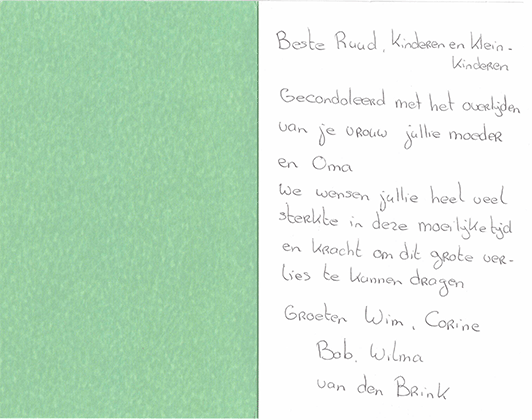 Beste Ruud, kinderen en klein-
kinderen
Gecondoleerd met het overlijden
van je vrouw jullie moeder
en Oma
We wensen jullie heel veel
sterkte in deze moeilijke tijd
en kracht om dit grote ver-
lies te kunnen dragen
Groeten Wim, Corine
Bob, Wilma
van den Brink